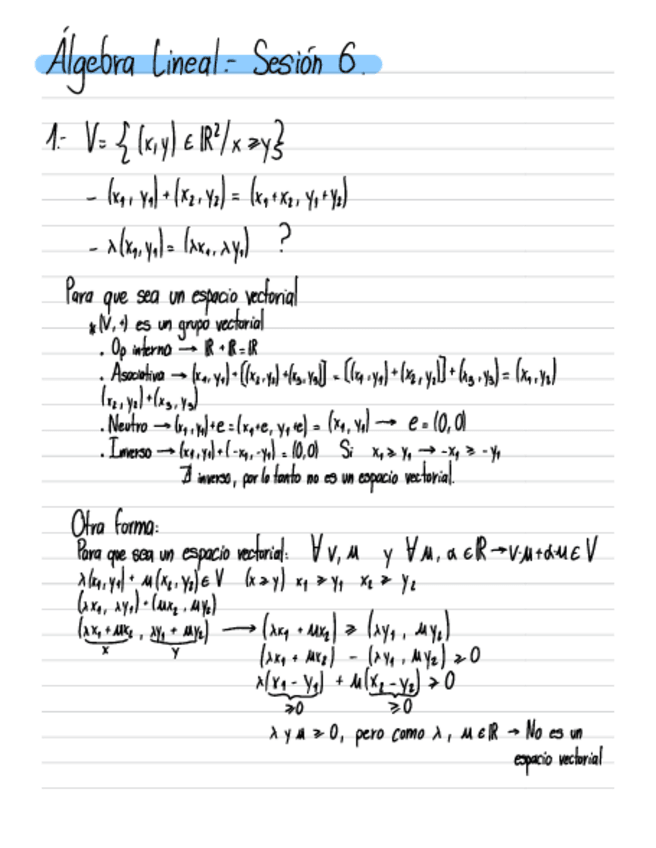 Álgebra Lineal.- Sesión 6.
1.- V= { (x,y) ∈ ℝ² / x ≥ y}
- (x₁, y₁)+(x₂, y₂) = (x₁+x₂, y₁+y₂)
- λ(x₁, y₁) = (λx₁, λy₁) ?
Para que sea un espacio vectorial
* (V, +) es un grupo vectorial
. Op interno → ℝ + ℝ = ℝ
. Asociativa → (x₁, y₁)+[(x₂, y₂)+(x₃, y₃)] = [(x₁, y₁)+(x₂, y₂)]+(x₃, y₃) = (x₁, y₁)
(x₂, y₂)+(x₃, y₃)
. Neutro → (x₁, y₁)+e = (x₁+e, y₁+e) = (x₁, y₁) → e = (0,0)
. Inverso → (x₁, y₁)+(-x₁, -y₁) = (0,0) Si x₁ ≥ y₁ → -x₁ ≥ -y₁
∄ inverso, por lo tanto no es un espacio vectorial.
Otra forma:
Para que sea un espacio vectorial: ∀ v, u y ∀ μ, α ∈ ℝ → v·μ + α·u ∈ V
λ(x₁, y₁) + μ(x₂, y₂) ∈ V (x ≥ y) x₁ ≥ y₁ x₂ ≥ y₂
(λx₁, λy₁)+(μx₂, μy₂)
(λx₁ + μx₂, λy₁ + μy₂) → (λx₁ + μx₂) ≥ (λy₁, μy₂)
x y (λx₁ + μx₂) - (λy₁, μy₂) ≥ 0
λ(x₁ - y₁) + μ(x₂ - y₂) ≥ 0
≥0 ≥0
λ y μ ≥ 0, pero como λ, μ ∈ ℝ → No es un
espacio vectorial